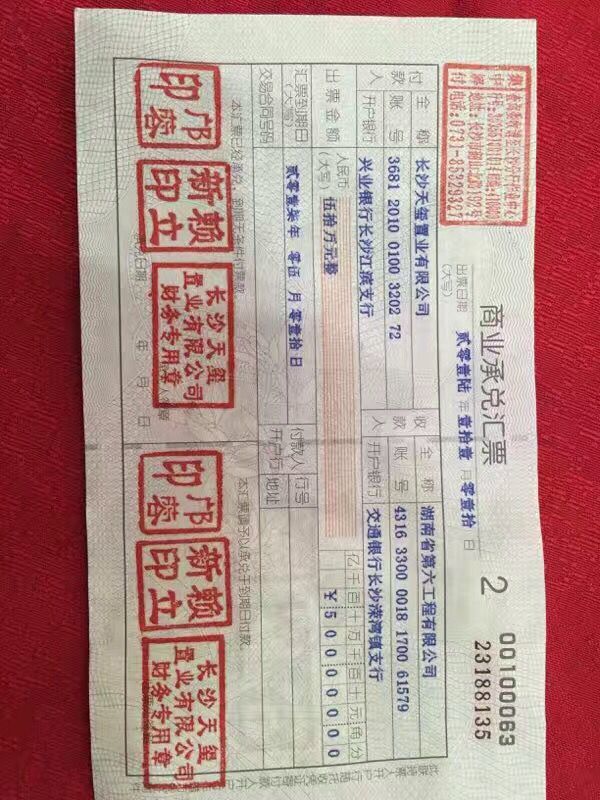 商业承兑汇票
2
00100063
23188135
出票日期
(大写)
贰零壹陆 年 壹拾壹 月 零壹拾 日
付款人
全称
长沙天玺置业有限公司
账号
3681 2010 0100 3202 72
开户银行
兴业银行长沙江滨支行
收款人
全称
湖南省第六工程有限公司
账号
4316 3300 0018 1700 61579
开户银行
交通银行长沙溁湾镇支行
出票金额
人民币
(大写)
伍拾万元整
亿千百十万千百十元角分
¥50000000
汇票到期日
(大写)
贰零壹柒年 零伍 月 零壹拾 日
付款人
开户行
行号
地址
交易合同号码
本汇票已经承兑,到期无条件付票款
本汇票请予以承兑于到期日付款
承兑日期 年 月 日
邝蓉印
赖新立印
长沙天玺
置业有限公司
财务专用章
邝蓉印
赖新立印
长沙天玺
置业有限公司
财务专用章